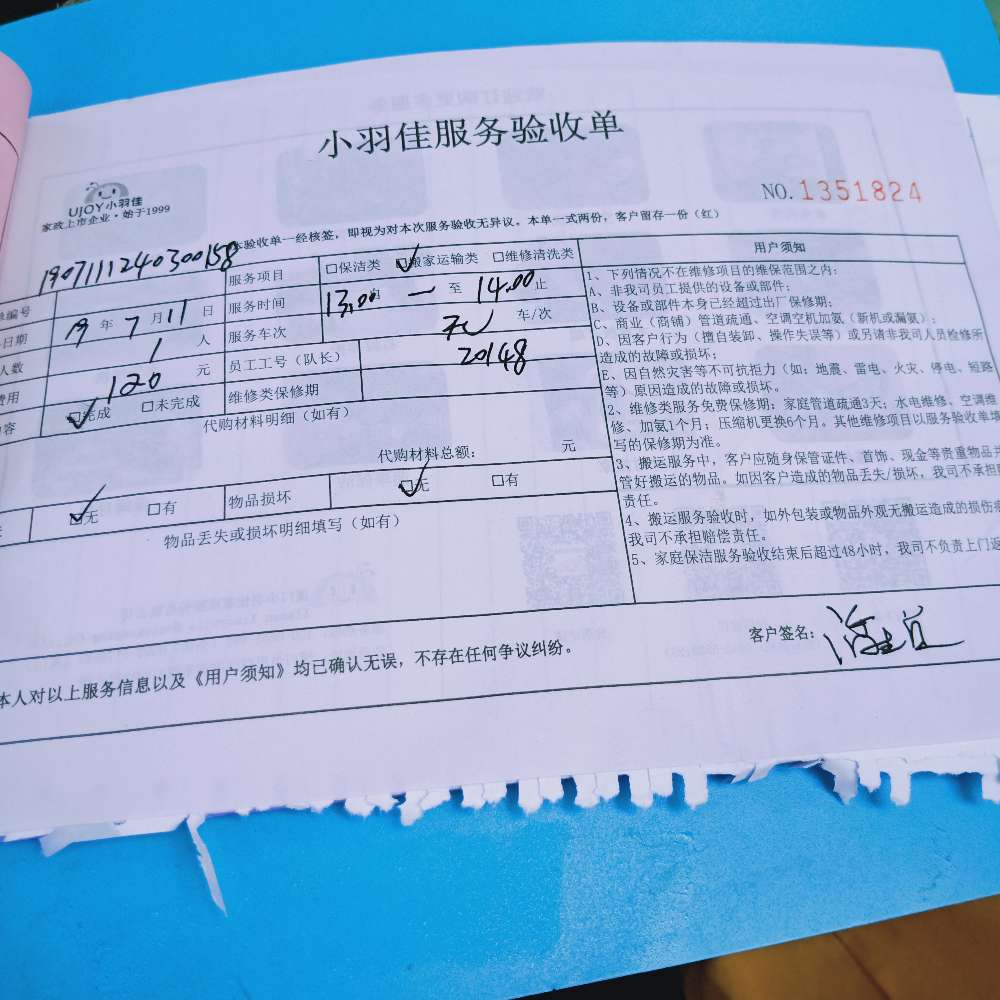 小羽佳服务验收单
UJOY小羽佳
家政上市企业·始于1999
NO.1351824
本验收单一经核签，即视为对本次服务验收无异议。本单一式两份，客户留存一份（红）
编号 1907111240300158 服务项目 □保洁类 ☑搬家运输类 □维修清洗类
日期 19年7月11日 服务时间 13:00自 — 至 14:00止
人数 1人 服务车次 车/次
费用 120元 员工工号（队长） 20148
内容 ☑完成 □未完成 维修类保修期
代购材料明细（如有）
代购材料总额： 元
☑无 □有 物品损坏 ☑无 □有
物品丢失或损坏明细填写（如有）
用户须知
1、下列情况不在维修项目的维保范围之内：
A、非我司员工提供的设备或部件；
B、设备或部件本身已经超过出厂保修期；
C、商业（商铺）管道疏通、空调空机加氨（新机或漏氨）；
D、因客户行为（擅自装卸、操作失误等）或另请非我司人员检修所
造成的故障或损坏；
E、因自然灾害等不可抗拒力（如：地震、雷电、火灾、停电、短路
等）原因造成的故障或损坏。
2、维修类服务免费保修期：家庭管道疏通3天；水电维修、空调维
修、加氨1个月；压缩机更换6个月。其他维修项目以服务验收单填
写的保修期为准。
3、搬运服务中，客户应随身保管证件、首饰、现金等贵重物品并
管好搬运的物品。如因客户造成的物品丢失/损坏，我司不承担
责任。
4、搬运服务验收时，如外包装或物品外观无搬运造成的损伤痕
我司不承担赔偿责任。
5、家庭保洁服务验收结束后超过48小时，我司不负责上门返
本人对以上服务信息以及《用户须知》均已确认无误，不存在任何争议纠纷。
客户签名：